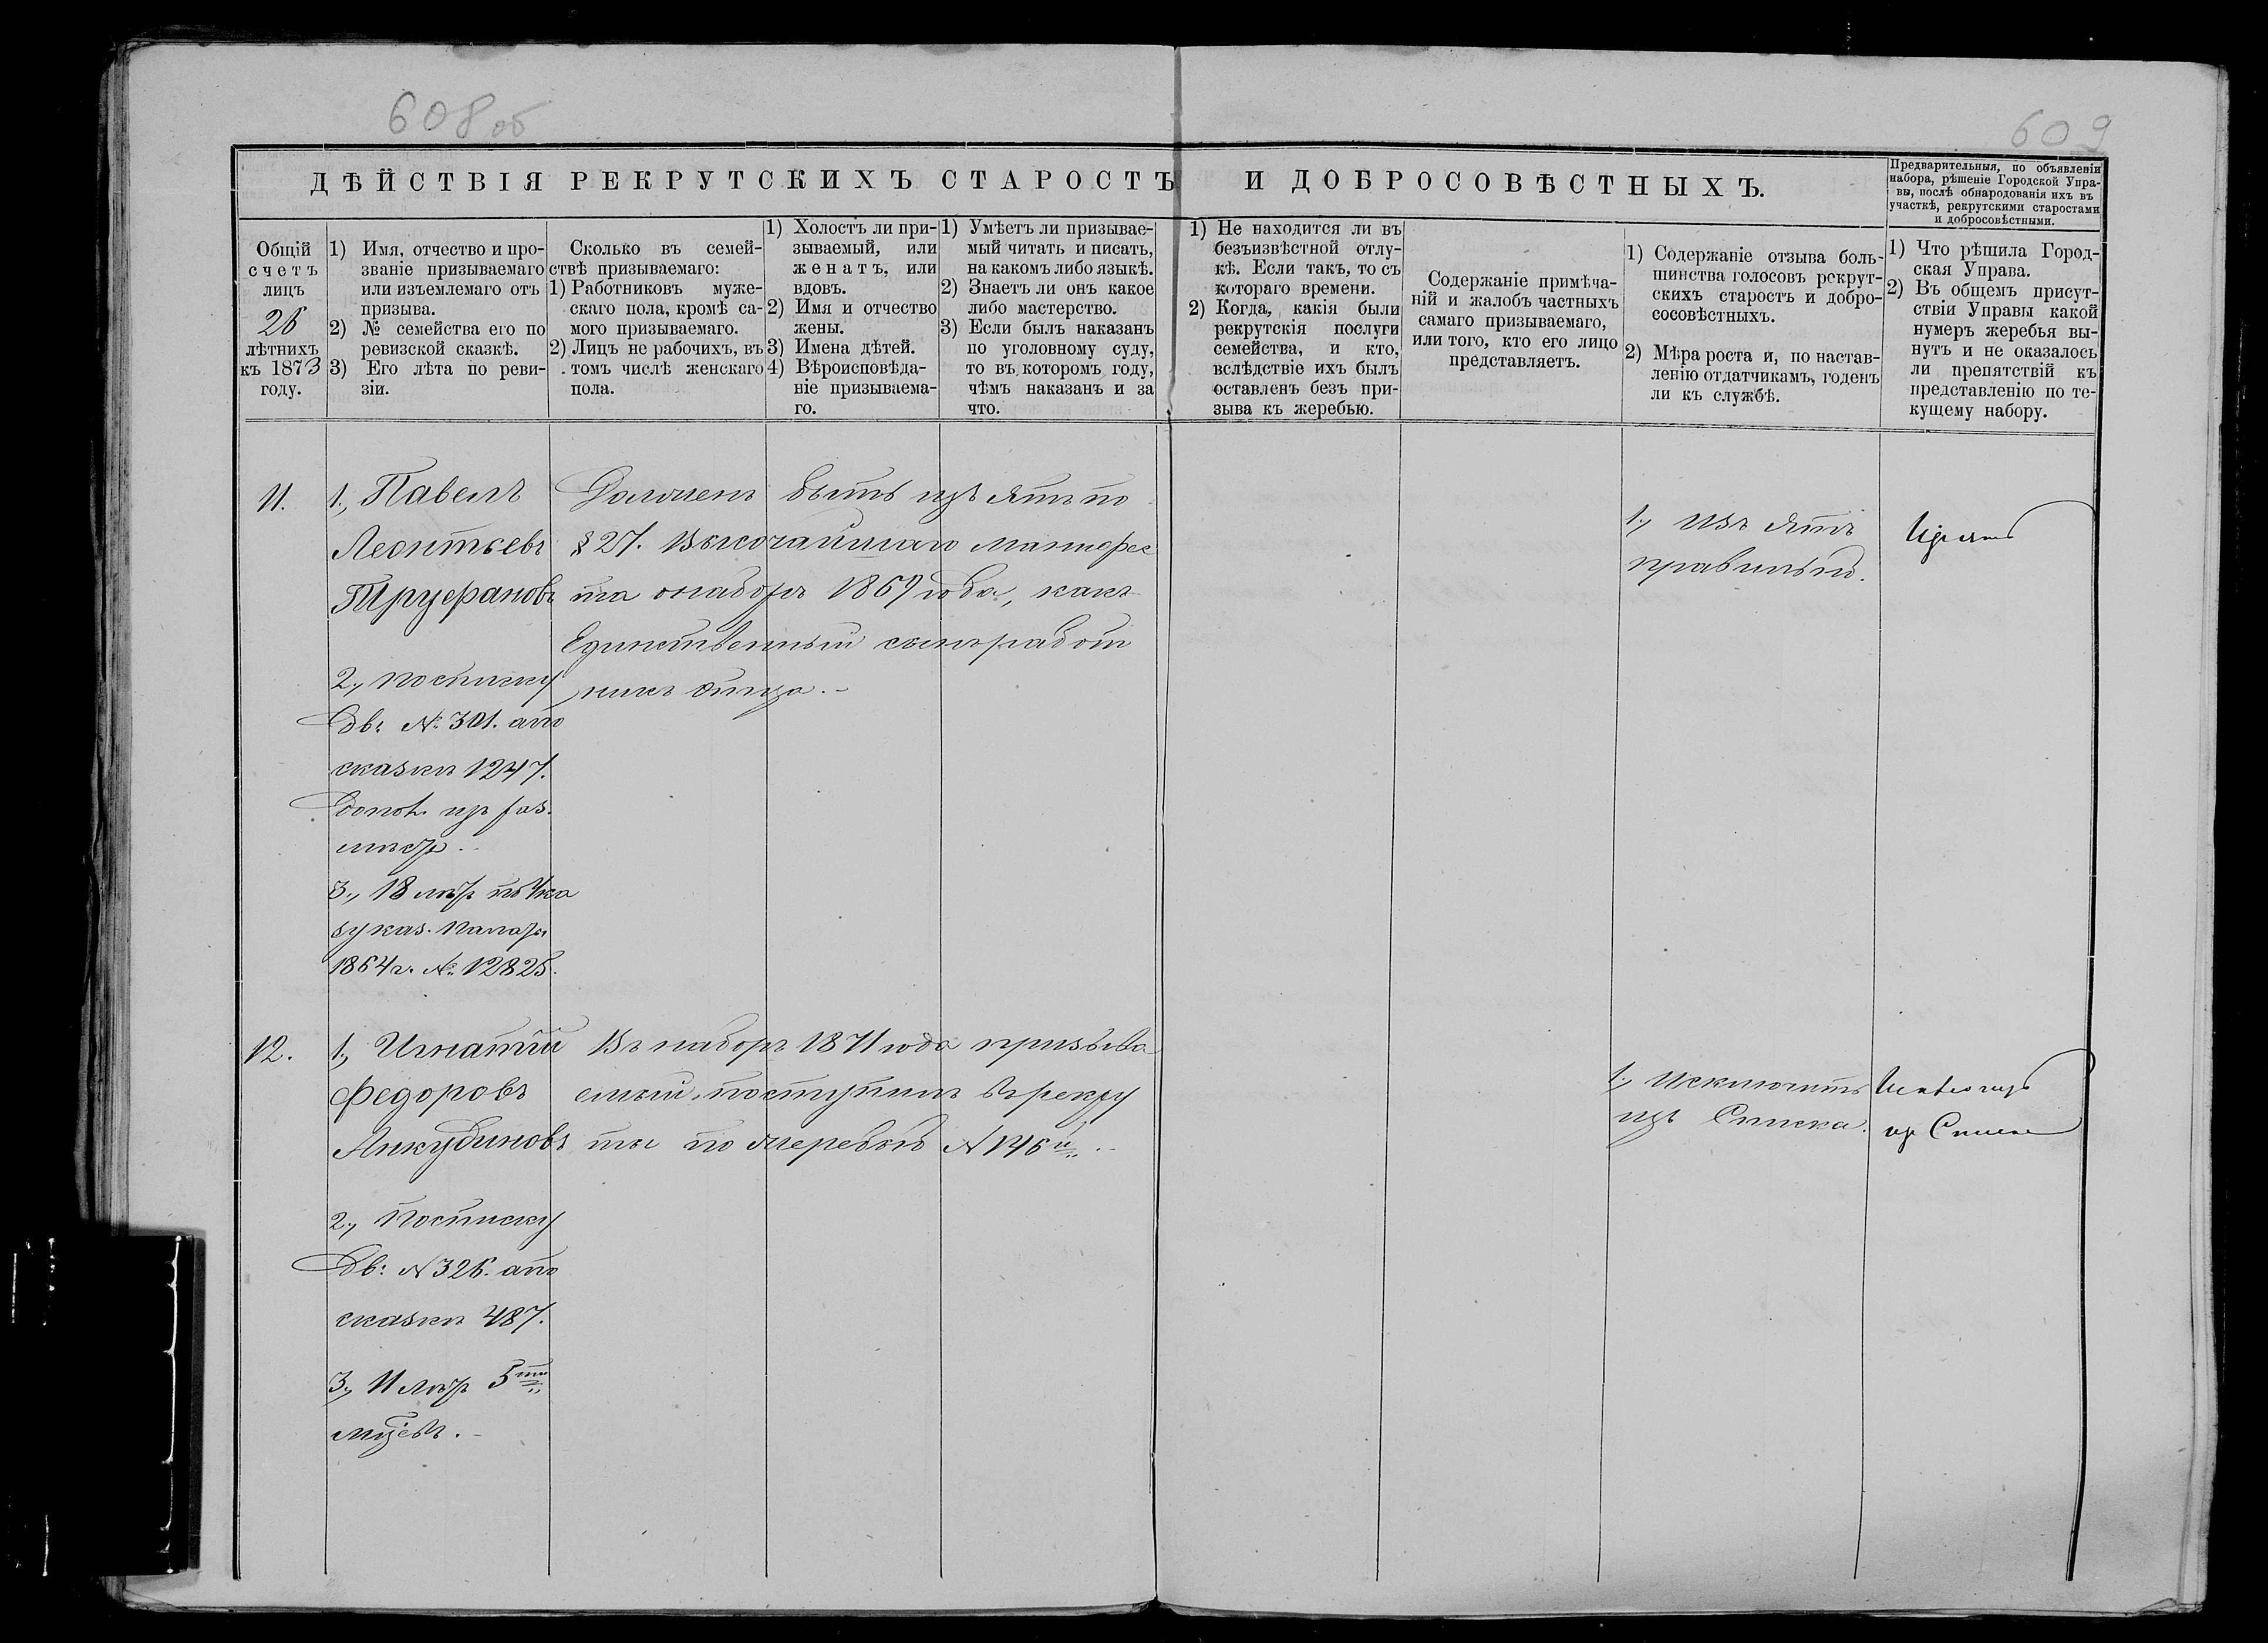 608 об
609
ДѢЙСТВІЯ РЕКРУТСКИХЪ СТАРОСТЪ И ДОБРОСОВѢСТНЫХЪ.
Предварительныя, по объявленіи
набора, рѣшеніе Городской Упра-
вы, послѣ обнародованія ихъ въ
участкѣ, рекрутскими старостами
и добросовѣстными.
Общій
счетъ
лицъ
26
лѣтнихъ
къ 1873
году.
1) Имя, отчество и про-
званіе призываемаго
или изъемлемаго отъ
призыва.
2) № семейства его по
ревизской сказкѣ.
3) Его лѣта по реви-
зіи.
Сколько въ семей-
ствѣ призываемаго:
1) Работниковъ муже-
скаго пола, кромѣ са-
мого призываемаго.
2) Лицъ не рабочихъ, въ
томъ числѣ женскаго
пола.
1) Холостъ ли при-
зываемый, или
женатъ, или
вдовъ.
2) Имя и отчество
жены.
3) Имена дѣтей.
4) Вѣроисповѣда-
ніе призываема-
го.
1) Умѣетъ ли призывае-
мый читать и писать,
на какомъ либо языкѣ.
2) Знаетъ ли онъ какое
либо мастерство.
3) Если былъ наказанъ
по уголовному суду,
то въ которомъ году,
чѣмъ наказанъ и за
что.
1) Не находится ли въ
безъизвѣстной отлу-
кѣ. Если такъ, то съ
котораго времени.
2) Когда, какія были
рекрутскія послуги
семейства, и кто,
вслѣдствіе ихъ былъ
оставленъ безъ при-
зыва къ жеребью.
Содержаніе примѣча-
ній и жалобъ частныхъ
самаго призываемаго,
или того, кто его лицо
представляетъ.
1) Содержаніе отзыва боль-
шинства голосовъ рекрут-
скихъ старостъ и добро-
сосовѣстныхъ.
2) Мѣра роста и, по настав-
ленію отдатчикамъ, годенъ
ли къ службѣ.
1) Что рѣшила Город-
ская Управа.
2) Въ общемъ присут-
ствіи Управы какой
нумеръ жеребья вы-
нутъ и не оказалось
ли препятствій къ
представленію по те-
кущему набору.
11.
1., Павелъ
Леонтьевъ
Труфановъ
2., по списку
дв: № 301. а по
сказкѣ 1247.
3., 18 лѣтъ по
указ.
1864 г. № 12825.
Долженъ быть изъятъ по
§ 27. Высочайшаго манифес
та о наборѣ 1869 года, какъ
Единственный сынъ работ
никъ отца.
1., Изъятъ
правильно.
Изъятъ
12.
1., Игнатій
Федоровъ
Анкудиновъ
2., По списку
дв: № 326. а по
сказкѣ 487.
3., 11 лѣтъ 5ти
мцевъ.
Въ наборѣ 1871 года призыва
емый поступилъ въ рекру
ты по жеребью № 146й.
1., Исключить
изъ Списка.
Исключить
изъ Списка